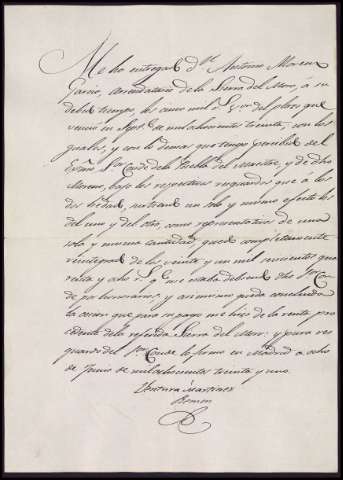 Me ha entregado Dn. Antonio Moreno
Garcia, arrendatario de la Sierra del Moro, á su
debido tiempo, los cinco mil rs. vn. del plazo que
venció en Agto. de mil ochocientos treinta, con los
quales, y con lo demas que tengo percibido del
Exmo. Sor. Conde de la Puebla del Maestre, y de dho
Moreno, bajo los respectivos resguardos que á los
dos he dado, entrando un solo y mismo efecto los
del uno y del otro, como representativos de una
sola y misma cantidad, quedo completamente
reintegrado de los veinte y un mil trescientos
renta y ocho rs. que me estaba debiendo dho Sor. Conde
de mis honorarios, y asimismo queda concluida
la accion que para su pago me hizo de la renta pro
cedente de la referida Sierra del Moro: y para res
guardo del Sor. Conde lo firmo en Madrid a ocho
de Junio de mil ochocientos treinta y uno.
Ventura Martinez
Remon